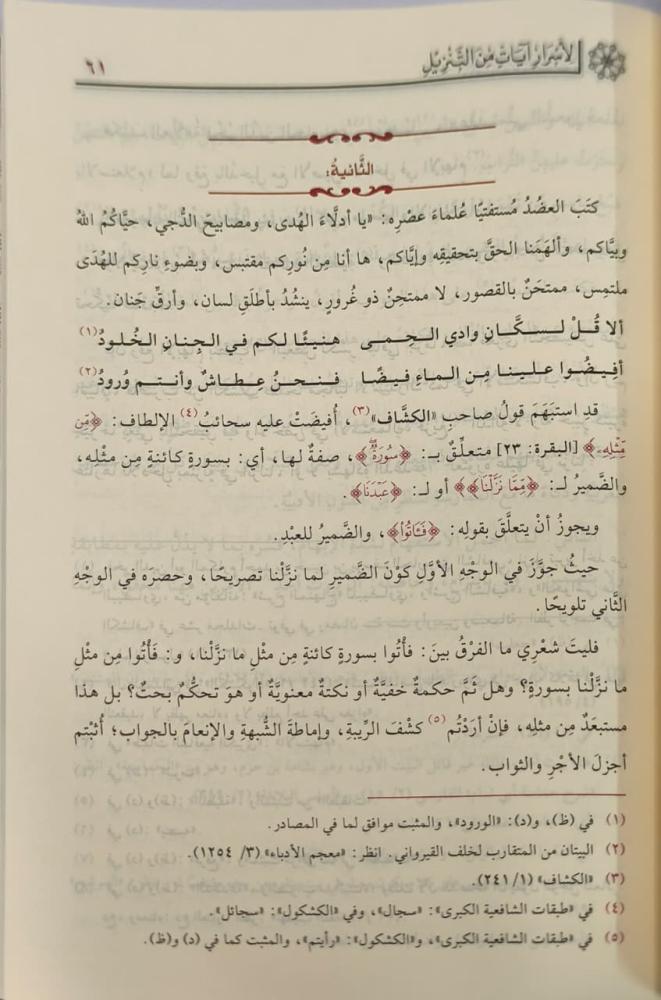 لأسرار آيات من التنزيل
٦١
الثَّانيةُ:
كتَبَ العضُدُ مُستفتيًا عُلماءَ عصْرِه: «يا أدلَّاءَ الهُدى، ومصابيحَ الدُّجي، حيَّاكُمُ اللهُ
وبيَّاكم، وألهَمَنا الحقَّ بتحقيقِه وإيَّاكم، ها أنا مِن نُورِكم مقتبس، وبضوءِ نارِكم للهُدَى
ملتمِس، ممتحَنٌ بالقصور، لا ممتحِنٌ ذو غُرورٍ، ينشُدُ بأطلَقِ لسان، وأرقِّ جَنان.
ألا قُلْ لسكَّانِ وادي الحِمى هنيئًا لكم في الجِنانِ الخُلودُ(١)
أفِيضُوا علينا مِن الماءِ فيضًا فنحنُ عِطاشٌ وأنتم وُرودُ(٢)
قدِ استبَهَمَ قولُ صاحبِ «الكشَّاف»(٣)، أُفيضَتْ عليه سحائبُ(٤) الإلطاف: ﴿مِّن
مِّثْلِهِۦ﴾ [البقرة: ٢٣] متعلِّقٌ بـ: ﴿سُورَةٍ﴾، صفةٌ لها، أي: بسورةٍ كائنةٍ مِن مثْلِه،
والضَّميرُ لـ: ﴿مِّمَّا نَزَّلْنَا﴾ أو لـ: ﴿عَبْدِنَا﴾.
ويجوزُ أنْ يتعلَّقَ بقولِه: ﴿فَأْتُوا۟﴾، والضَّميرُ للعبْدِ.
حيثُ جوَّزَ في الوجْهِ الأوَّلِ كوْنَ الضَّميرِ لما نزَّلْنا تصريحًا، وحصَرَه في الوجْهِ
الثَّاني تلويحًا.
فليتَ شعْرِي ما الفرْقُ بينَ: فأْتُوا بسورةٍ كائنةٍ مِن مثْلِ ما نزَّلْنا، و: فَأْتُوا مِن مثْلِ
ما نزَّلْنا بسورةٍ؟ وهل ثَمَّ حكمةٌ خفيَّةٌ أو نكتةٌ معنويَّةٌ أو هوَ تحكُّمٌ بحتٌ؟ بل هذا
مستبعَدٌ مِن مثلِه، فإنْ أرَدْتُم(٥) كشْفَ الرِّيبةِ، وإماطةَ الشُّبهةِ والإنعامَ بالجواب؛ أُثبْتِم
أجزلَ الأجْرِ والثواب.
(١) في (ظ)، و(د): «الورود»، والمثبت موافق لما في المصادر.
(٢) البيتان من المتقارب لخلف القيرواني. انظر: «معجم الأدباء» (٣/ ١٢٥٤).
(٣) «الكشاف» (١/ ٢٤١).
(٤) في «طبقات الشافعية الكبرى»: «سجال»، وفي «الكشكول»: «سجائل».
(٥) في «طبقات الشافعية الكبرى»، و«الكشكول»: «رأيتم»، والمثبت كما في (د) و(ظ).